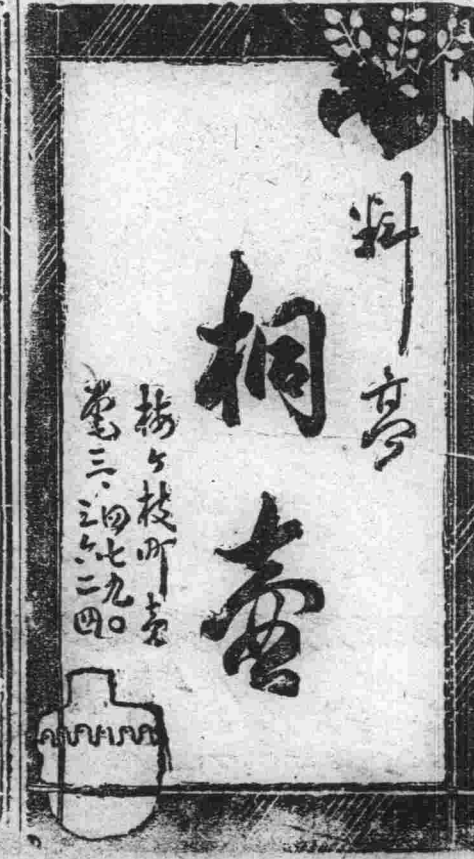 料亭
桐壺
梅ヶ枝町壱
電三、四七九〇
三六二四